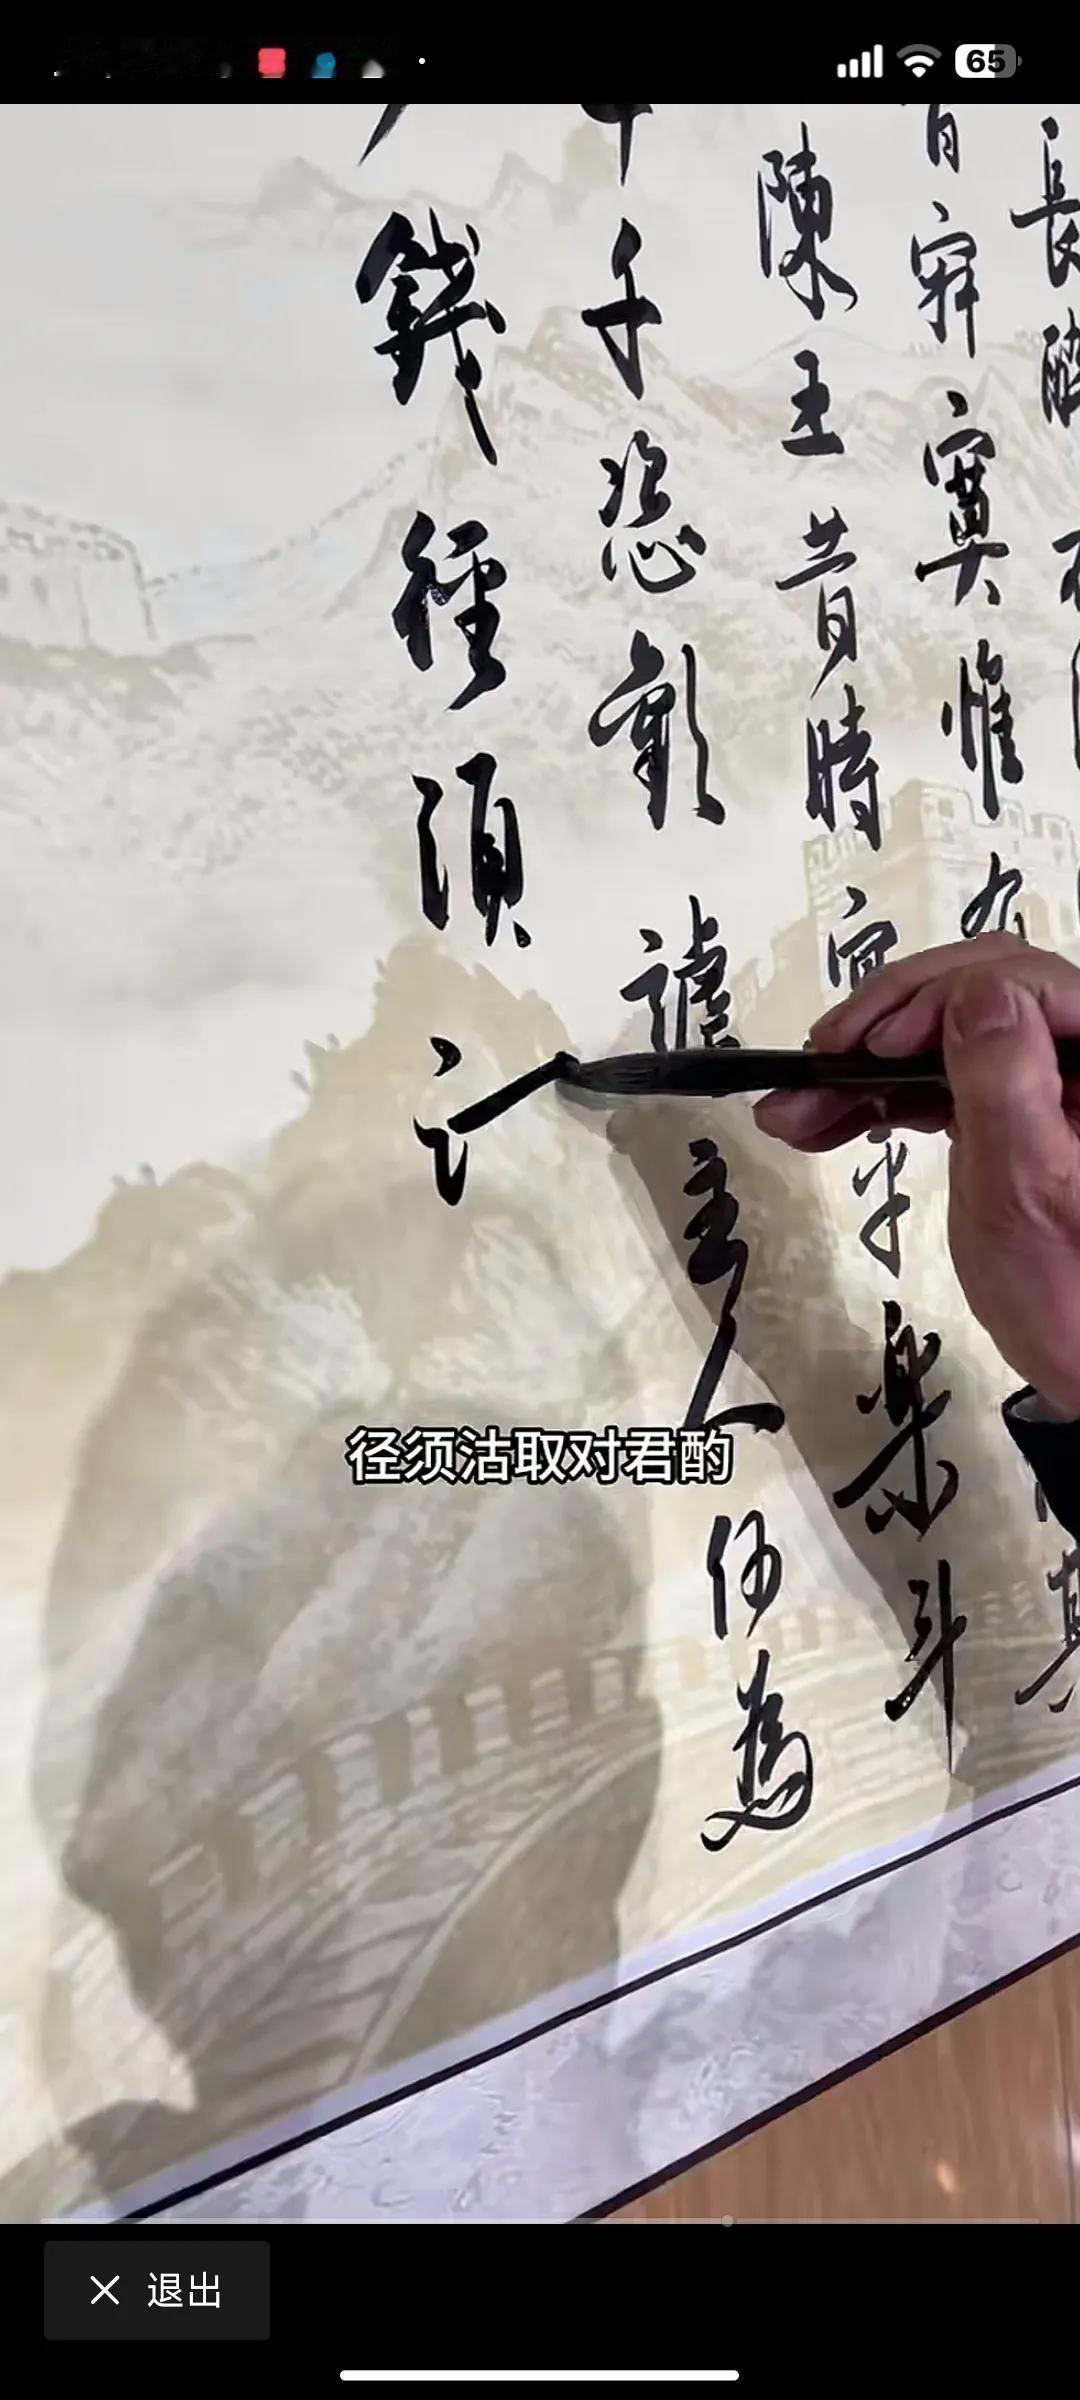 65
長醉
寂寞惟有
陳王昔時宴平樂斗
千恣歡謔主人何為
錢徑須
径须沽取对君酌
退出